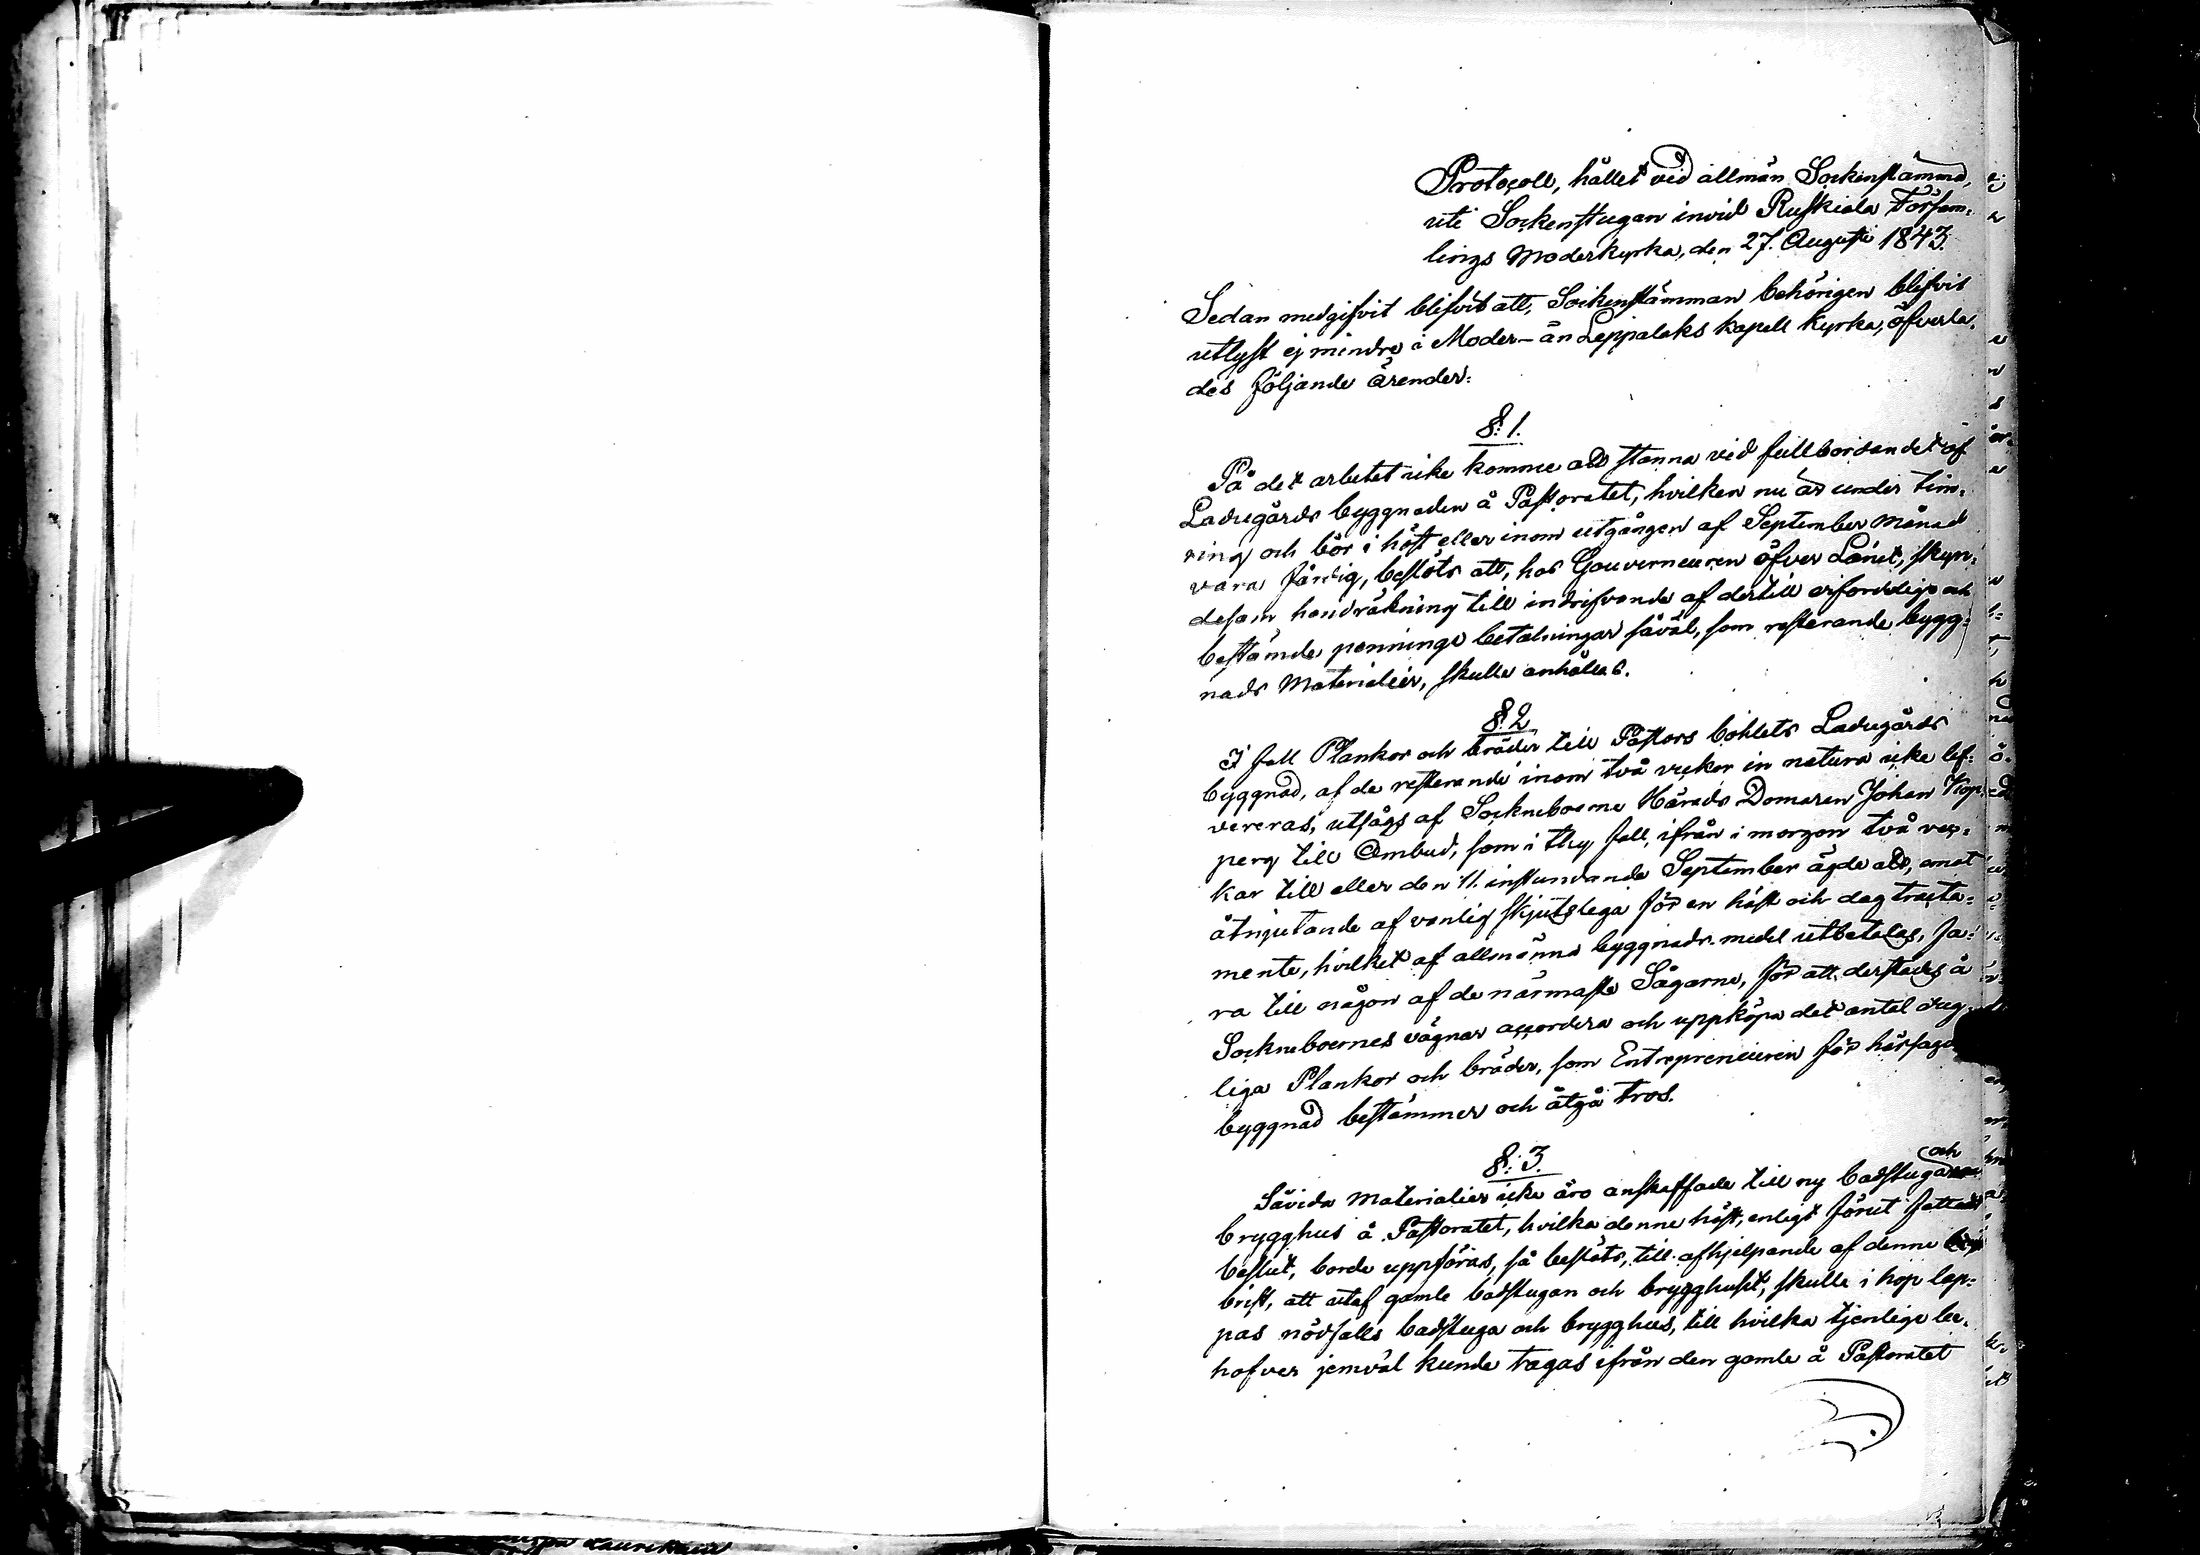 Protocoll, hållet vid allmän Sockenstämma,
uti Sockenstugan invid Ruskiala Försam-
lings Moderkyrka, den 27. Augusti 1843.
Sedan medgifvit blifvit att, Sockenstämman behörigen blifvit
utlyst ej mindre i Moder- än Leppälaks kapell kyrka, öfverla-
des följande ärender:
§. 1.
På det arbetet icke komme att stanna vid fullbordandet af
Ladugårds byggnaden å Pastoratet, hvilken nu är under tim-
ring och bör i höst eller inom utgången af September månad
vara färdig, beslöts att, hos Gouverneuren öfver Länet, skyn-
desam handräkning till indrifvande af dertill erforderlige och
bestämde penninge betalningar såväl, som resterande bygg-
nads Materialier, skulle anhållas.
§. 2
I fall Plankor och bräder till Pastors bohlets Ladugårds
byggnad, af de resterande inom två veckor in natura icke lef-
vereras, utsågs af Sockneboerne Härads Domaren Johan Kop-
perg till Ombud, som i thy fall, ifrån i morgon två vec-
kor till eller den 11. instundande September ägde att, emot
åtnjutande af vanlig skjutslega för en häst och dag tracta-
mente, hvilket af allmänna byggnads-medel utbetalas, fa-
ra till någon af de närmaste Sågarne, för att derstädes å
Sockneboernes vägnar accordera och uppköpa det antal dug-
liga Plankor och bräder, som Entrepreneuren för härsagde
byggnad bestämmer och åtgå tros.
§. 3.
Såvida Materialier icke äro anskaffade till ny badstuga och
brygghus å Pastoratet, hvilka denne höst, enligt förut fattadt
beslut, borde uppföras, så beslöts, till afhjelpande af denne
brist, att utaf gamle badstugan och brygghuset, skulle i hop lap-
pas nödfalls badstuga och brygghus, till hvilka tjenlige be-
hofver jemväl kunde tagas ifrån den gamle å Pastoratet